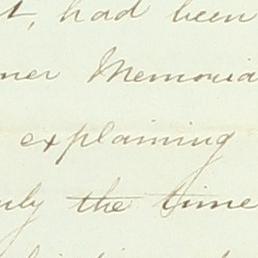 t, had been
ner Memoria
explaining
uly the time